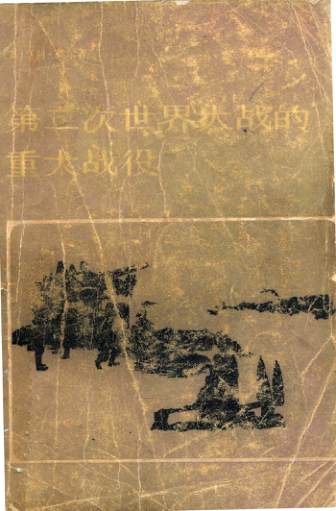 第二次世界大战的
重大战役